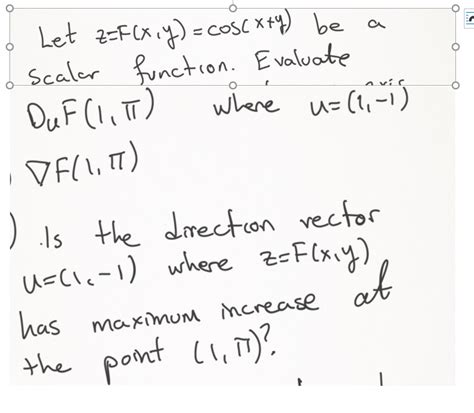 Let z=F(x,y)=cos(x+y) be a
scalar function. Evaluate
DuF(1,π) where u=(1,-1)
∇F(1,π)
) Is the direction vector
u=(1,-1) where z=F(x,y)
has maximum increase at
the point (1,π)?